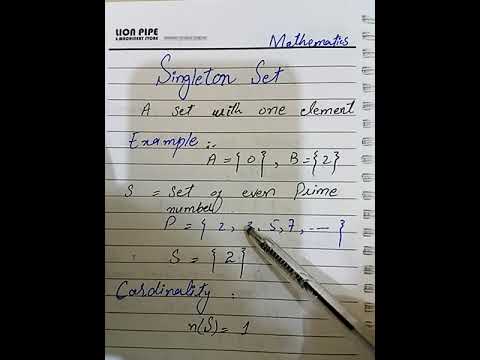 LION PIPE
& MACHINERY STORE
Mathematics
Singleton Set
A set with one element
Example :-
A = { 0 } , B = { 2 }
S = set of even Prime
number
P = { 2, 3, 5, 7, --- }
S = { 2 }
Cardinality :
n(S) = 1